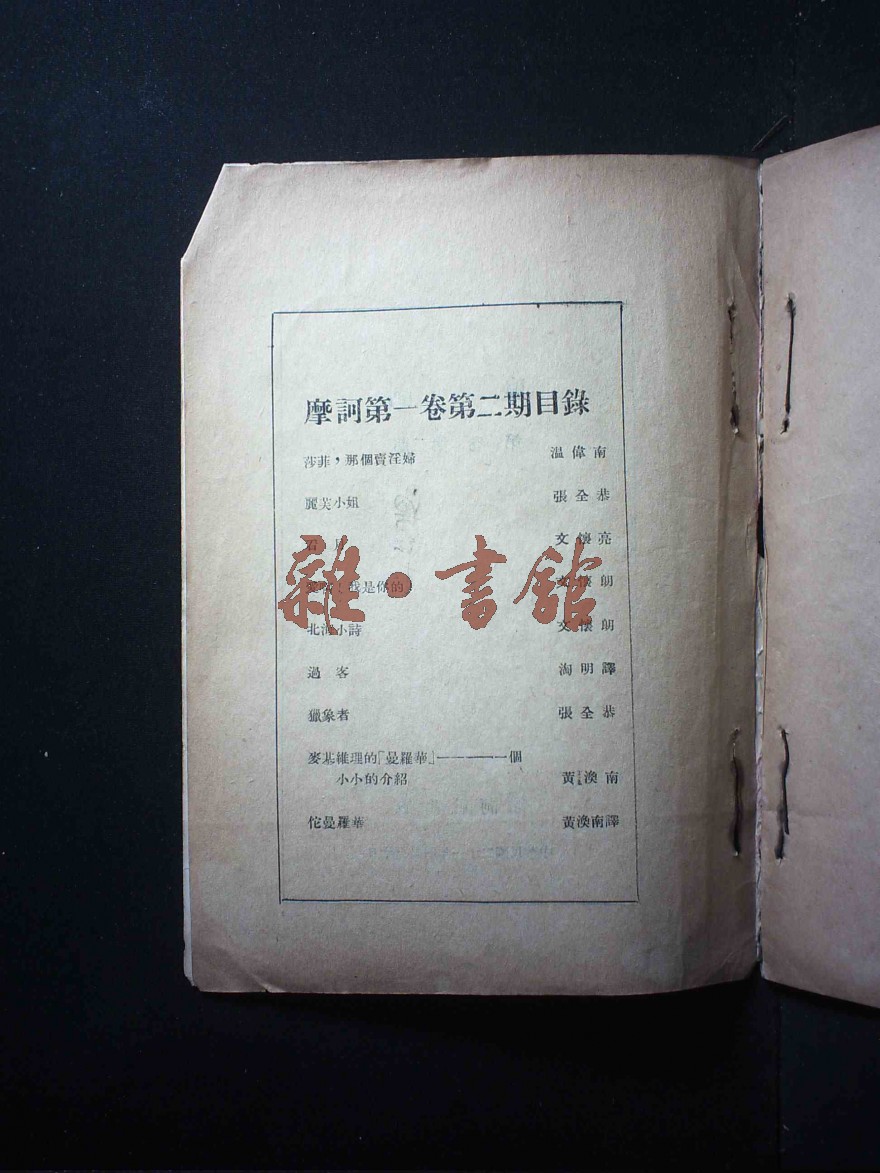 摩訶第一卷第二期目錄
莎菲，那個賣淫婦 溫偉南
麗芙小姐 張全恭
石 文懷亮
我是你的！ 文懷朗
北海小詩 文懷朗
過客 淘明譯
獵象者 張全恭
麥基維理的「曼羅華」————一個
小小的介紹 黃渙南
佗曼羅華 黃渙南譯
雜·書館